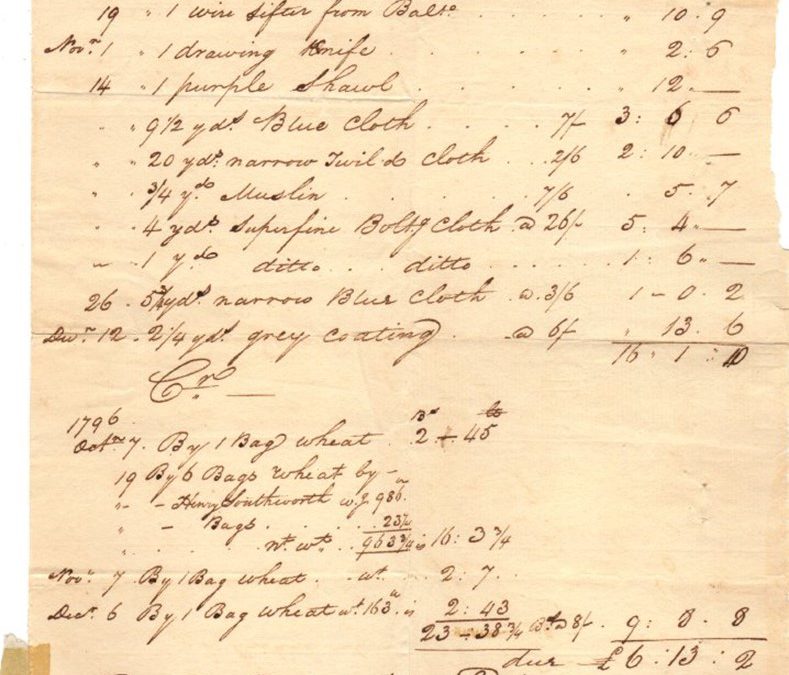 19 " 1 wire Sifter from Balto. " 10 . 9
Novr. 1 " 1 drawing Knife " 2 : 6
14 " 1 purple Shawl " 12 " —
" " 9 1/2 yds. Blue Cloth 7/- 3 : 6 6
" " 20 yds. narrow Twil'd Cloth 2/6 2 : 10 —
" 3/4 yd. Muslin 7/6 . 5 . 7
" 4 yds. Superfine Boltg Cloth a 26/- 5 : 4 " —
" 1 yd. ditto ditto 1 : 6 " —
26 . 5 3/4 yds. narrow Blue Cloth a 3/6 1 - 0 . 2
Decr. 12 . 2 1/4 yds. grey Coating a 6/- " 13 . 6
16 " 1 : 10
Cr.
1796
Bs. lb
Octr. 7. By 1 Bag wheat 2 - 45
19 By 6 Bags Wheat by -
" - Henry Southworth w.g 986
" - Bags 23 1/4
" nt. wt. 963 3/4 is 16 : 3 3/4
Novr. 7 By 1 Bag wheat wt. 2 : 7
Decr. 6 By 1 Bag wheat wt. 163 is 2 : 43
23 - 38 3/4 Bs. a 8/- 9 : 8 . 8
due £6 : 13 : 2